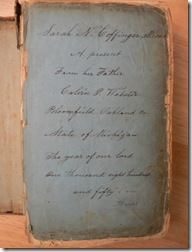 Sarah N. Coffinger
A present
From her Father
Calvin P. Webster
Bloomfield Oakland Co
State of Michigan
The year of our lord
One thousand eight hundred
and fifty.